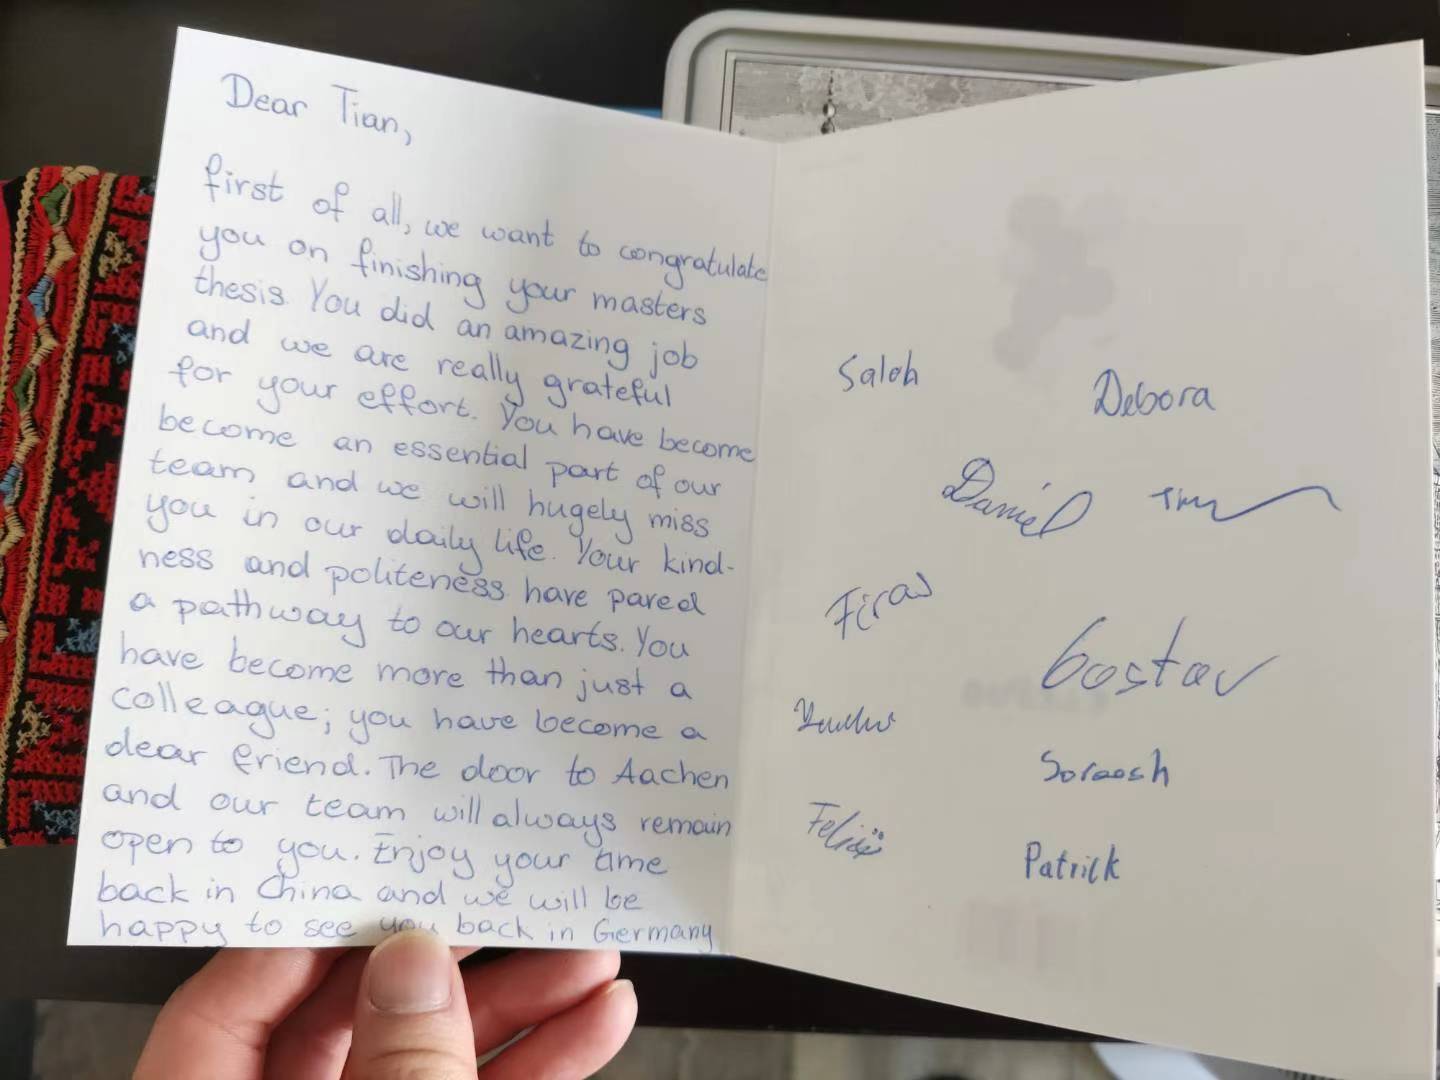 Dear Tian,
first of all, we want to congratulate
you on finishing your masters
thesis. You did an amazing job
and we are really grateful
for your effort. You have become
become an essential part of our
team and we will hugely miss
you in our daily life. Your kind-
ness and politeness have pared
a pathway to our hearts. You
have become more than just a
colleague; you have become a
dear friend. The door to Aachen
and our team will always remain
open to you. Enjoy your time
back in China and we will be
happy to see you back in Germany
Saleh
Debora
Daniel
Firas
Gustav
Soroosh
Felix
Patrick